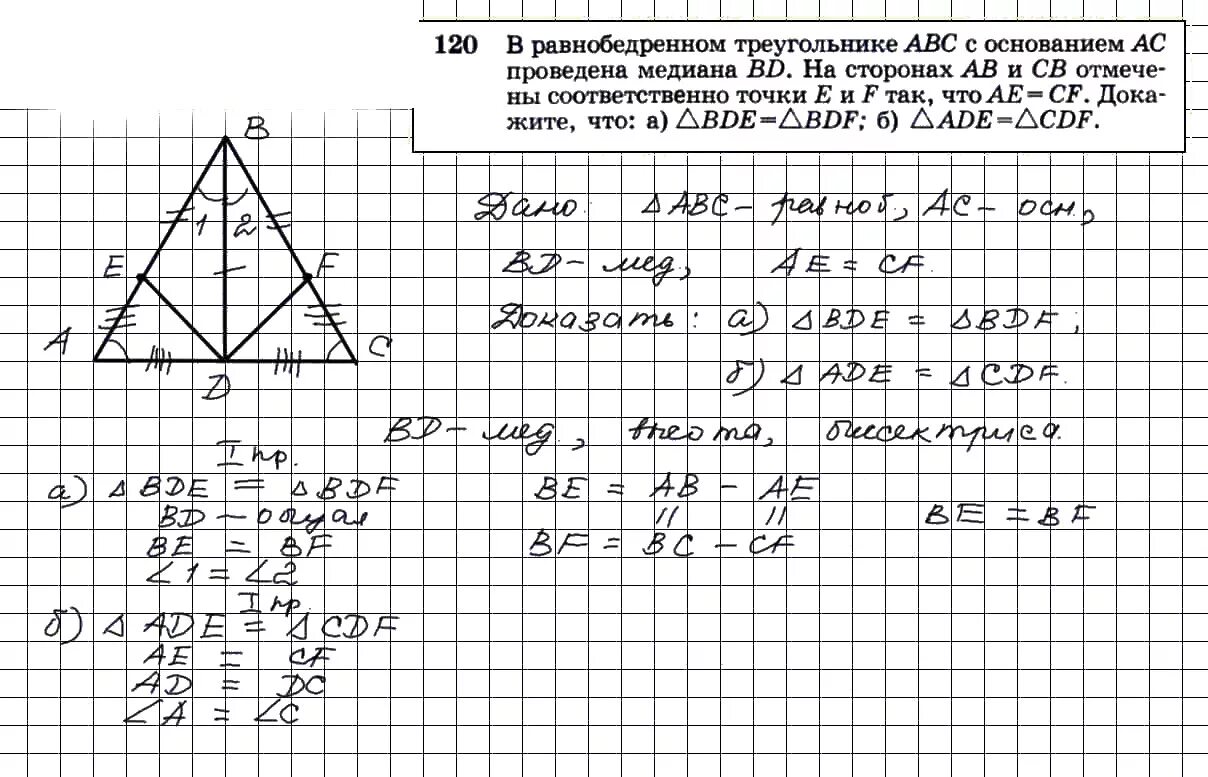 120 В равнобедренном треугольнике ABC с основанием AC
проведена медиана BD. На сторонах AB и CB отмече-
ны соответственно точки E и F так, что AE=CF. Дока-
жите, что: а) △BDE=△BDF; б) △ADE=△CDF.
B
1 2
E F
A C
D
Дано: △ABC – равноб., AC – осн.,
BD – мед, AE = CF.
Доказать: а) △BDE = △BDF;
б) △ADE = △CDF.
BD – мед., высота, биссектриса.
I пр.
а) △BDE = △BDF
BD – общая
BE = BF
∠1 = ∠2
BE = AB – AE
|| ||
BF = BC – CF
BE = BF
I пр.
б) △ADE = △CDF
AE = CF
AD = DC
∠A = ∠C